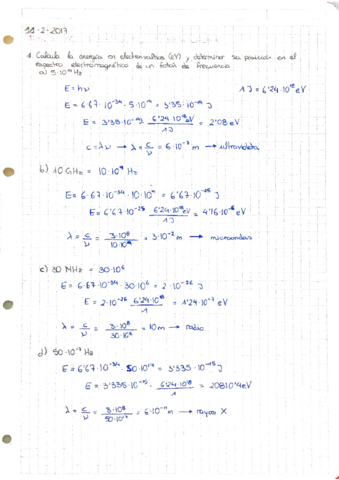 11-2-2017
1. Calcula la energía en electronvoltios (eV) y determinar su posición en el
espectro electromagnético de un fotón de frecuencia
a) 5·10¹⁴ Hz
E = hν 1J = 6'24·10¹⁸ eV
E = 6'67·10⁻³⁴ · 5·10¹⁴ = 3'35·10⁻¹⁹ J
E = 3'35·10⁻¹⁹J · 6'24·10¹⁸eV / 1J = 2'08 eV
c = λν → λ = c/ν = 6·10⁻⁷ m → ultravioleta
b) 10 GHz = 10·10⁹ Hz
E = 6·67·10⁻³⁴ · 10·10⁹ = 6'67·10⁻²⁵ J
E = 6'67·10⁻²⁵ · 6'24·10¹⁸eV / 1J = 4'16·10⁻⁶ eV
λ = c/ν = 3·10⁸ / 10·10⁹ = 3·10⁻² m → microondas
c) 30 MHz = 30·10⁶
E = 6·67·10⁻³⁴ · 30·10⁶ = 2·10⁻²⁶ J
E = 2·10⁻²⁶ · 6'24·10¹⁸ / 1 = 1'24·10⁻⁷ eV
λ = c/ν = 3·10⁸ / 30·10⁶ = 10m → radio
d) 50·10¹⁷ Hz
E = 6'67·10⁻³⁴ · 50·10¹⁷ = 3'335·10⁻¹⁵ J
E = 3'335·10⁻¹⁵ · 6'24·10¹⁸ / 1 = 20810'4 eV
λ = c/ν = 3·10⁸ / 50·10¹⁷ = 6·10⁻¹¹ m → rayos X